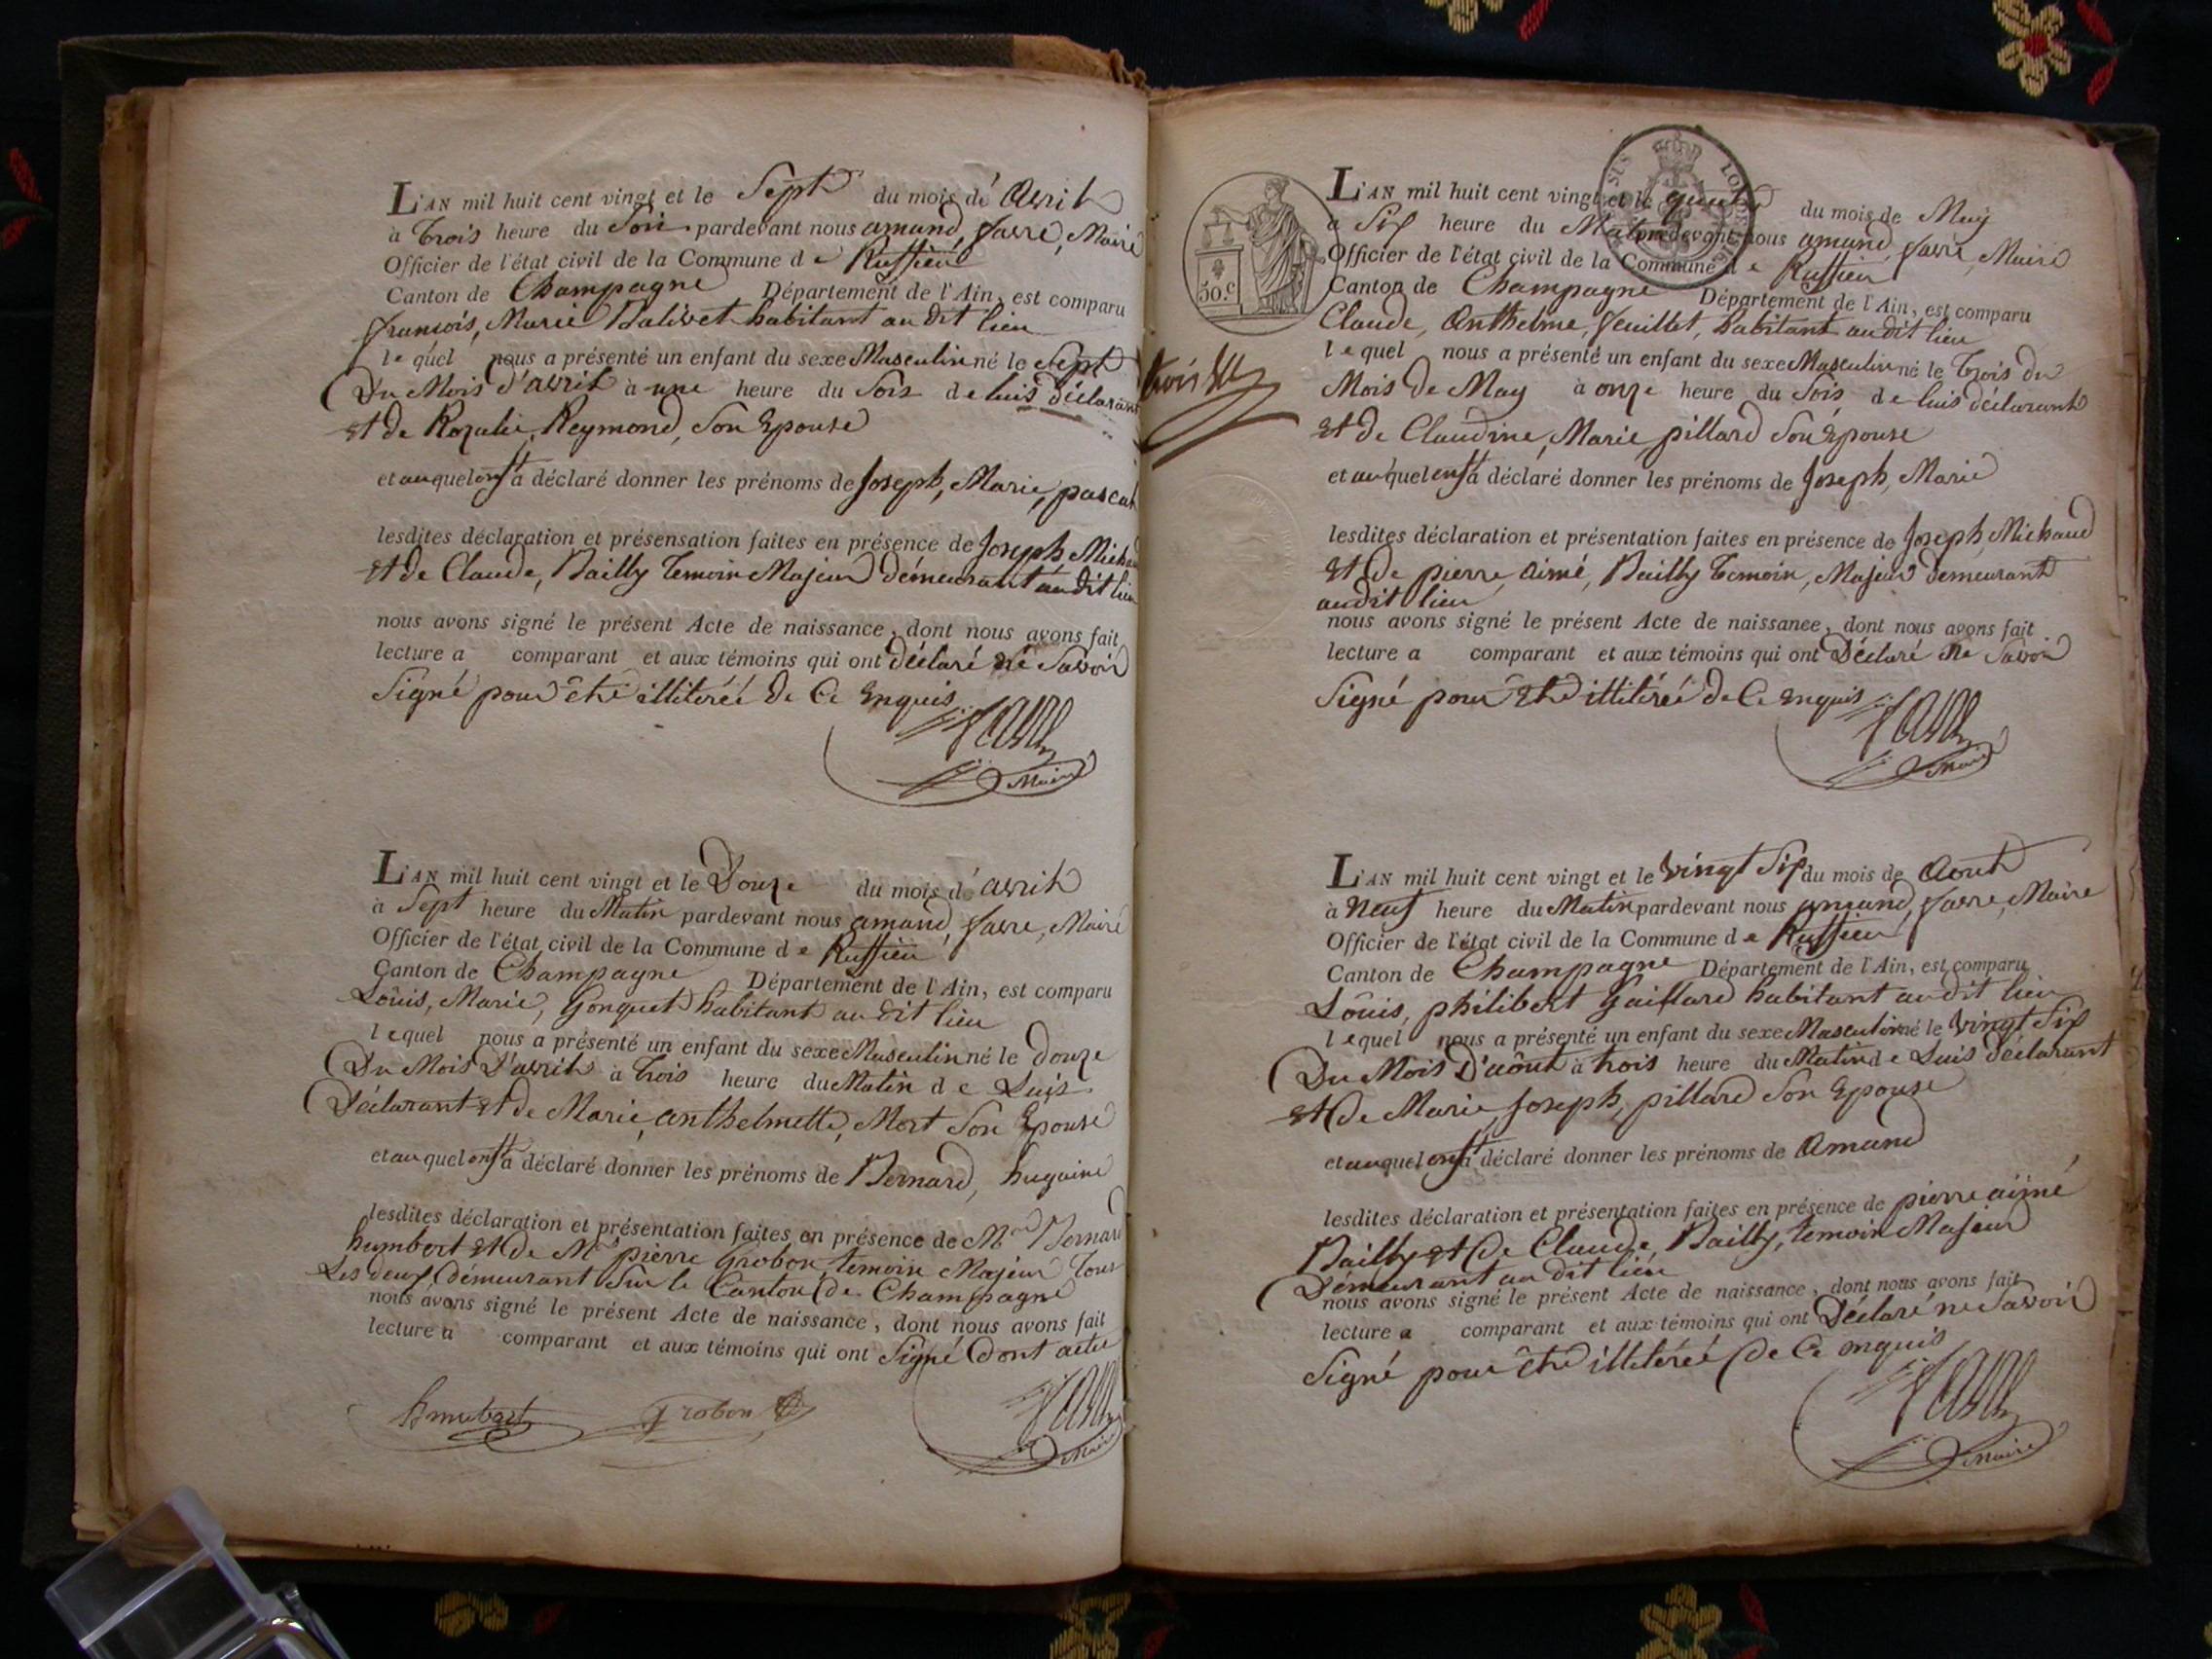 L'AN mil huit cent vingt et le Sept du mois de Avril
à trois heure du Soir pardevant nous amand, favre, Maire
Officier de l'état civil de la Commune de Ruffieu
Canton de Champagne Département de l'Ain, est comparu
françois, Marie Balivet habitant au dit lieu
lequel nous a présenté un enfant du sexe Masculin né le Sept
Du Mois d'avril à une heure du Soir de luis déclarant
et de Rozalie, Reymond, Son Epouse
et auquel enft a déclaré donner les prénoms de Joseph, Marie, pascal
lesdites déclaration et présensation faites en présence de Joseph Michaud
et de Claude, Bailly temoin Majeur démeurant au dit lieu
nous avons signé le présent Acte de naissance, dont nous avons fait
lecture a comparant et aux témoins qui ont déclaré ne Savoir
Signé pour être illiterée de Ce enquis
favre
Maire
L'AN mil huit cent vingt et le Douze du mois d'avril
à Sept heure du Matin pardevant nous amand, favre, Maire
Officier de l'état civil de la Commune de Ruffieu
Canton de Champagne Département de l'Ain, est comparu
Louis, Marie, Gonguet habitant au dit lieu
lequel nous a présenté un enfant du sexe Masculin né le douze
Du Mois D'avril à trois heure du Matin de Luis
Déclarant et de Marie, anthelmette, Mort Son Epouse
et auquel enft a déclaré donner les prénoms de Bernard, hugaine
lesdites déclaration et présentation faites en présence de Mr Bernard
humbert et de Mr pierre Grobon, temoin Majeur tous
Les deux, démeurant Sur le Canton de Champagne
nous avons signé le présent Acte de naissance, dont nous avons fait
lecture a comparant et aux témoins qui ont Signé Dont acte
humbert grobon favre
Maire
L'AN mil huit cent vingt et le quatre du mois de May
à Six heure du Matin pardevant nous amand, favre, Maire
Officier de l'état civil de la Commune de Ruffieu
50.c Canton de Champagne Département de l'Ain, est comparu
Claude, Anthelme, feuillet, habitant au dit lieu
lequel nous a présenté un enfant du sexe Masculin né le trois du
Mois de May à onze heure du Soir de luis déclarant
et de Claudine, Marie, pillard Son Epouse
et auquel enft a déclaré donner les prénoms de Joseph, Marie
lesdites déclaration et présentation faites en présence de Joseph, Michaud
et de pierre, aimé, Bailly temoin, Majeur demeurant
au dit lieu
nous avons signé le présent Acte de naissance, dont nous avons fait
lecture a comparant et aux témoins qui ont Déclaré ne Savoir
Signé pour être illitérée de Ce enquis
favre
Maire
L'AN mil huit cent vingt et le vingt Six du mois de Aout
à neuf heure du Matin pardevant nous amand, favre, Maire
Officier de l'état civil de la Commune de Ruffieu
Canton de Champagne Département de l'Ain, est comparu
Louis, philibert Gaillard habitant au dit lieu
lequel nous a présenté un enfant du sexe Masculin né le vingt Six
Du Mois D'août à trois heure du Matin de Luis déclarant
et de Marie, Joseph, pillard Son Epouse
et auquel enft a déclaré donner les prénoms de Amand
lesdites déclaration et présentation faites en présence de pierre aimé
Bailly et de Claude, Bailly, temoin Majeur
Démeurant au dit lieu
nous avons signé le présent Acte de naissance, dont nous avons fait
lecture a comparant et aux témoins qui ont Déclaré ne Savoir
Signé pour être illitérée de Ce enquis
favre
Maire